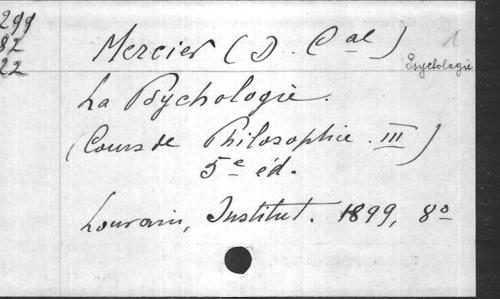 299
82
22
Mercier (D. Cal)
1
Psychologie
La Psychologie.
(Cours de Philosophie. III)
5e éd.
Louvain, Institut. 1899, 8o